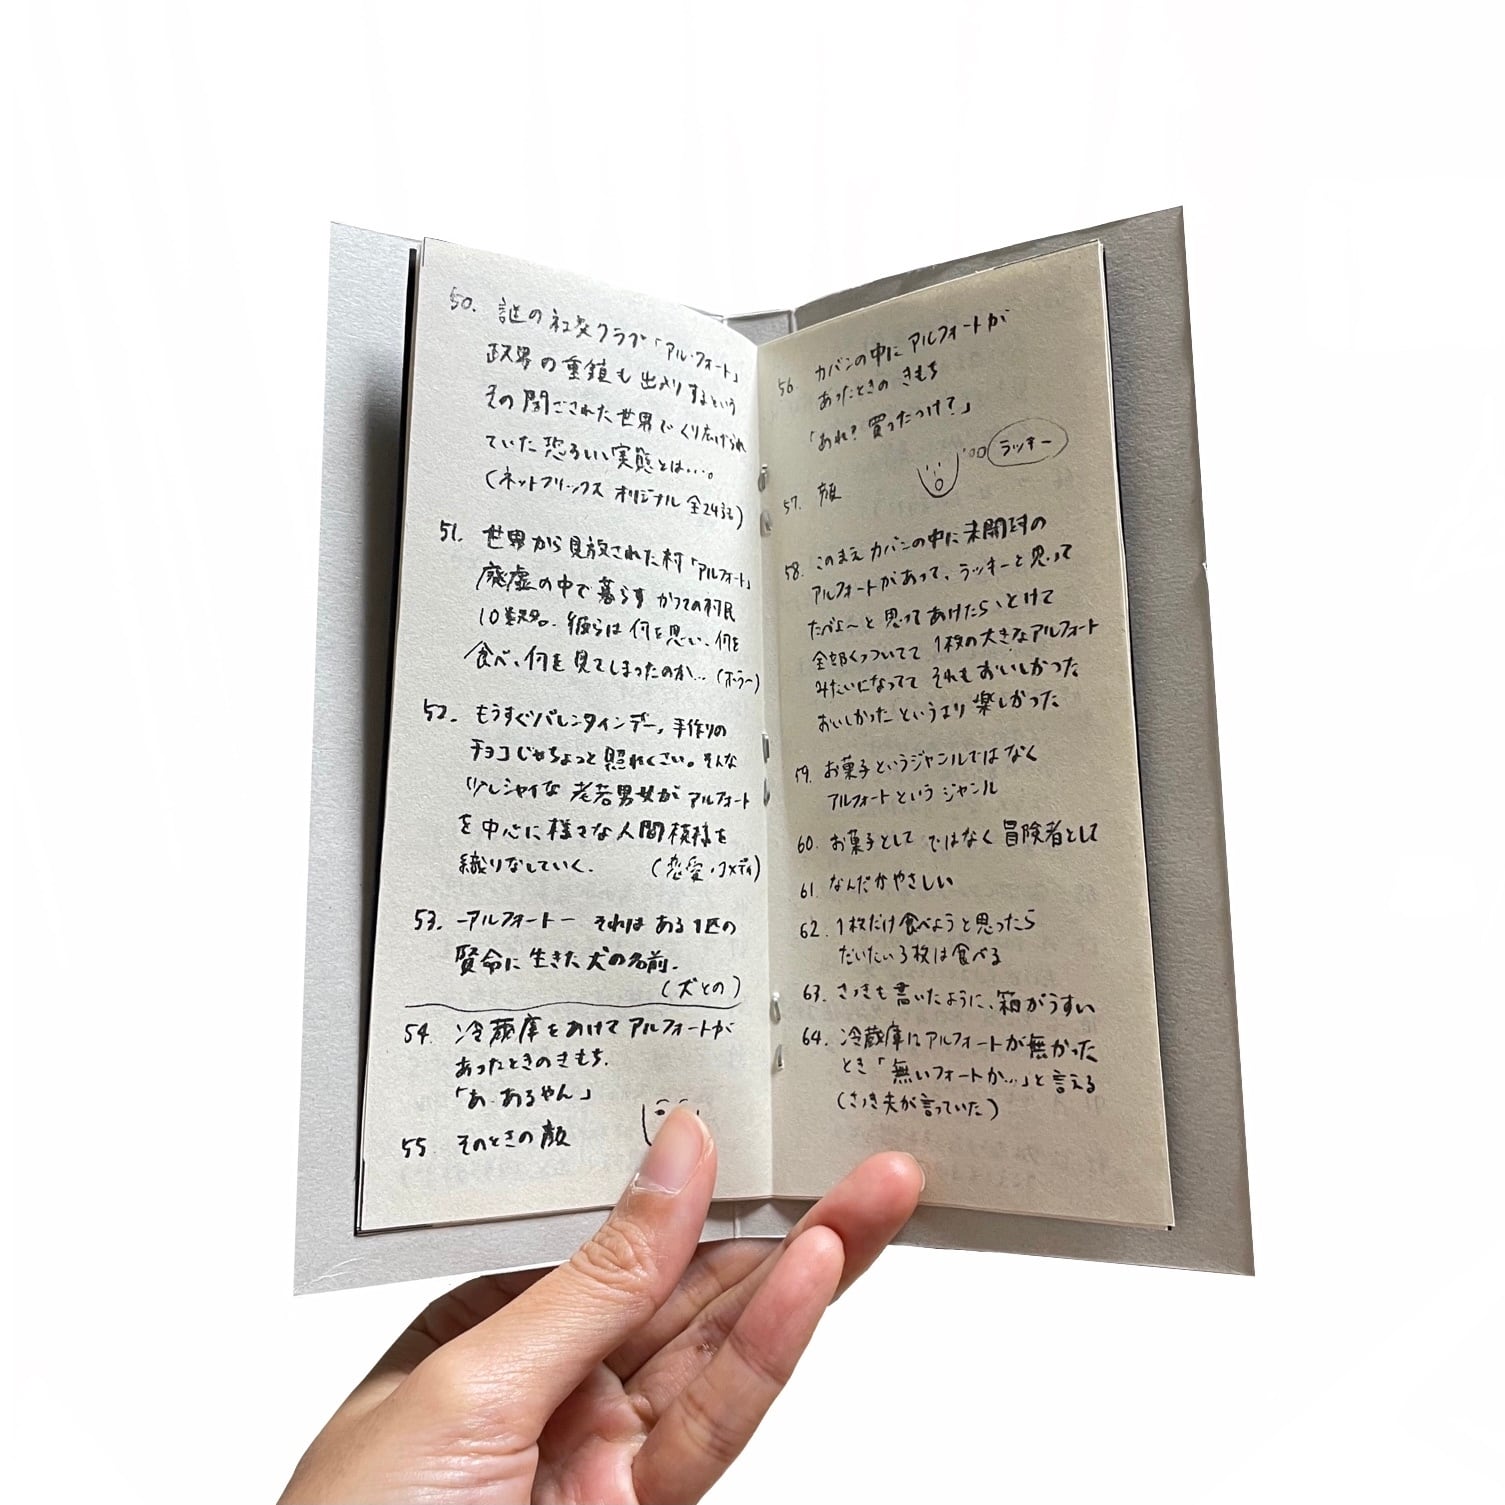 50. 謎の社交クラブ「アル・フォート」
政界の重鎮も出入りするという
その閉ざされた世界でくり広げられ
ていた恐ろしい実態とは…。
(ネットフリックス オリジナル 全24話)
51. 世界から見放された村「アルフォート」
廃虚の中で暮らす かつての村民
10数名。彼らは何を思い、何を
食べ、何を見てしまったのか… (ホラー)
52. もうすぐバレンタインデー。手作りの
チョコじゃちょっと照れくさい。そんな
少しシャイな 老若男女が アルフォート
を中心に様々な人間模様を
織りなしていく. (恋愛・コメディ)
53. ーアルフォートー それは ある1匹の
賢命に生きた犬の名前.
(犬との)
54. 冷蔵庫をあけて アルフォートが
あったときのきもち.
「あ、あるやん」
55. そのときの顔
56. カバンの中に アルフォートが
あったときの きもち
「あれ?買ったっけ?」
ラッキー
57. 顔
58. このまえカバンの中に未開封の
アルフォートがあって、ラッキーと思って
たべよ〜と思ってあけたら、とけて
全部くっついてて 1枚の大きなアルフォート
みたいになってて それもおいしかった
おいしかったというより楽しかった
59. お菓子というジャンルではなく
アルフォートという ジャンル
60. お菓子として ではなく 冒険者として
61. なんだかやさしい
62. 1枚だけ食べようと思ったら
だいたい3枚は食べる
63. さっきも書いたように、箱がうすい
64. 冷蔵庫にアルフォートが無かった
とき「無いフォートか…」と言える
(さっき夫が言っていた)